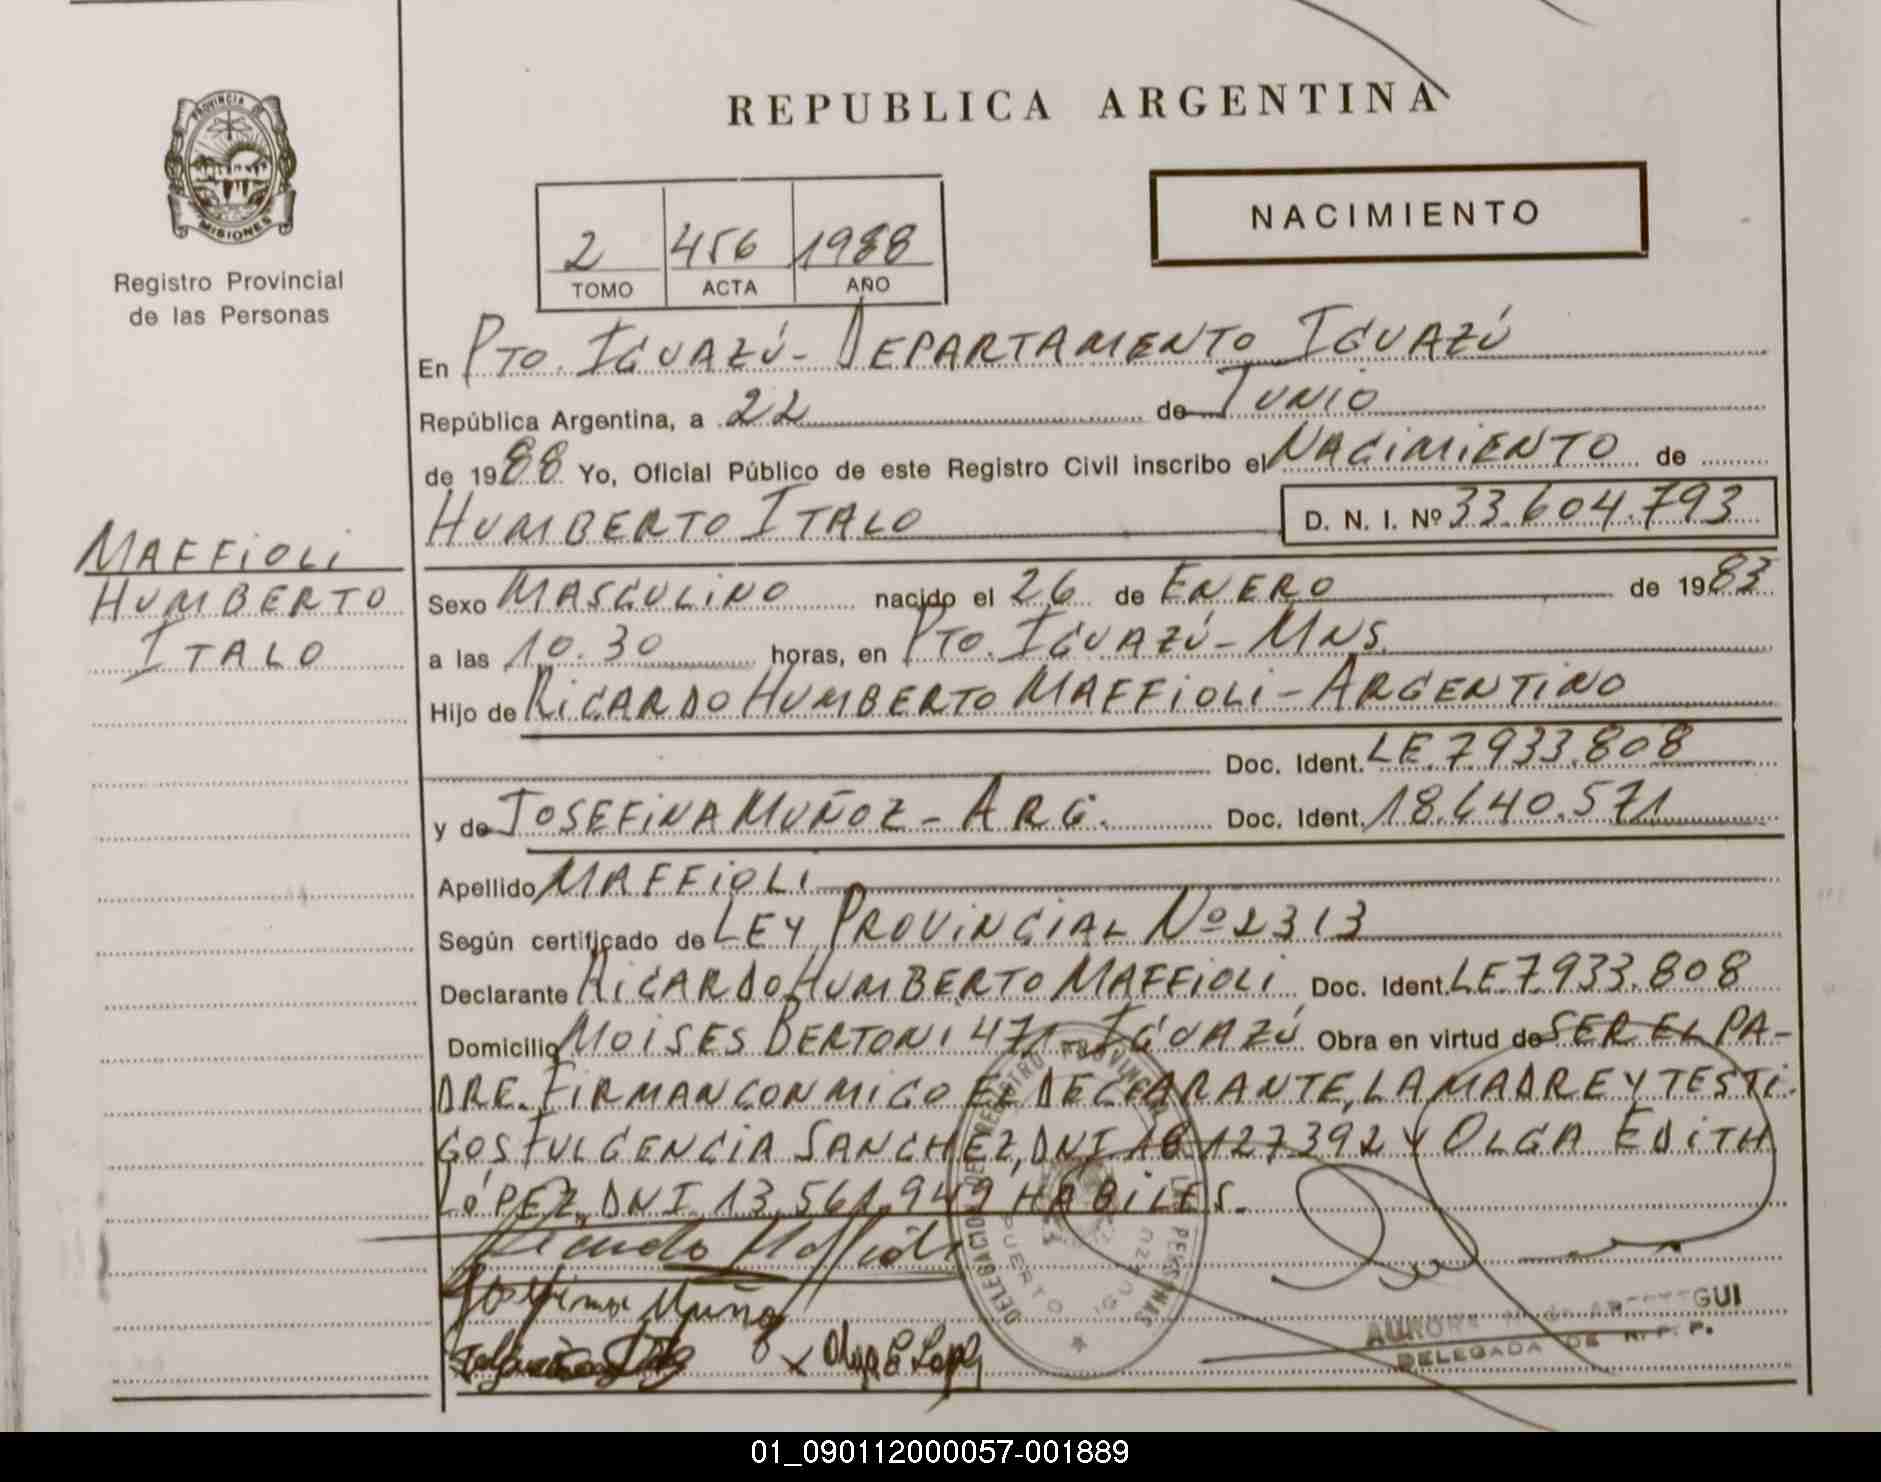 REPUBLICA ARGENTINA
PROVINCIA DE
MISIONES
Registro Provincial
de las Personas
NACIMIENTO
2 456 1988
TOMO ACTA AÑO
En PTO. IGUAZÚ - DEPARTAMENTO IGUAZÚ
República Argentina, a 22 de JUNIO
de 1988 Yo, Oficial Público de este Registro Civil inscribo el NACIMIENTO de
HUMBERTO ITALO D. N. I. Nº 33.604.793
MAFFIOLI
HUMBERTO
ITALO
Sexo MASCULINO nacido el 26 de ENERO de 1983
a las 10.30 horas, en PTO. IGUAZÚ - MNS.
Hijo de RICARDO HUMBERTO MAFFIOLI - ARGENTINO
Doc. Ident. LE.7.933.808
y de JOSEFINA MUÑOZ - ARG. Doc. Ident. 18.640.571
Apellido MAFFIOLI
Según certificado de LEY PROVINCIAL Nº 2313
Declarante RICARDO HUMBERTO MAFFIOLI Doc. Ident. LE.7.933.808
Domicilio MOISES BERTONI 471 - IGUAZÚ Obra en virtud de SER EL PA-
DRE. FIRMAN CONMIGO EL DECLARANTE, LA MADRE Y TESTI-
GOS FULGENCIA SANCHEZ, DNI 18.127392 Y OLGA EDITH
LÓPEZ, DNI 13.561.949 HABILES.
Ricardo Maffioli
Josefina Muñoz
x Olga E Lopez
DELEGACION PUERTO IGUAZU
GUI
DELEGADA DE R. P. P.
01_090112000057-001889